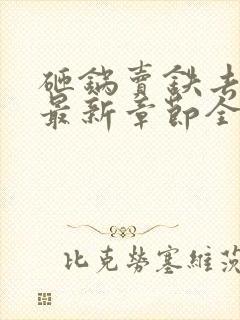 砸鍋賣鉄去
最新章節全
比克勞塞維茨